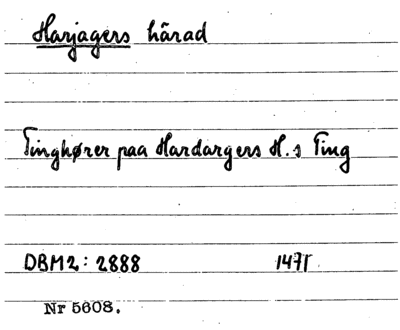 Harjagers härad
Tinghører paa Hardargers H.s Ting
DBM2: 2888 1471
Nr 5608.